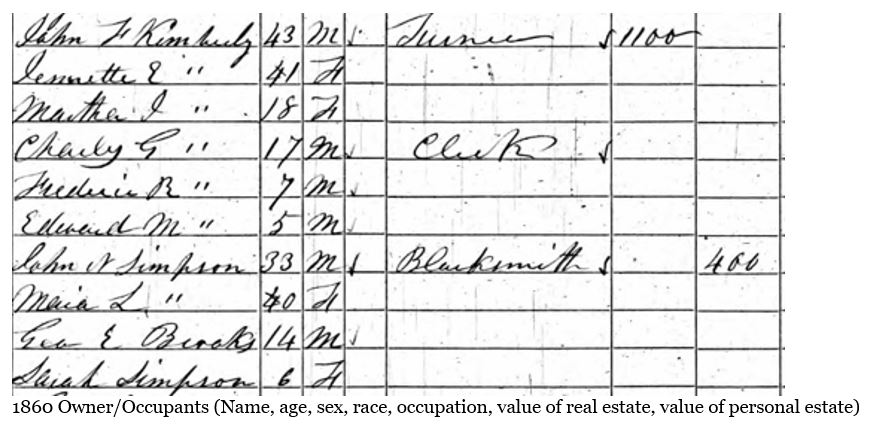 John F Kimberly 43 M Turner $1100
Jennette E " 41 F
Martha J " 18 F
Charly G " 17 M Clerk
Frederic R " 7 M
Edward M " 5 M
John N Simpson 33 M Blacksmith 400
Maria L " 40 F
Geo E Brooks 14 M
Sarah Simpson 6 F
1860 Owner/Occupants (Name, age, sex, race, occupation, value of real estate, value of personal estate)